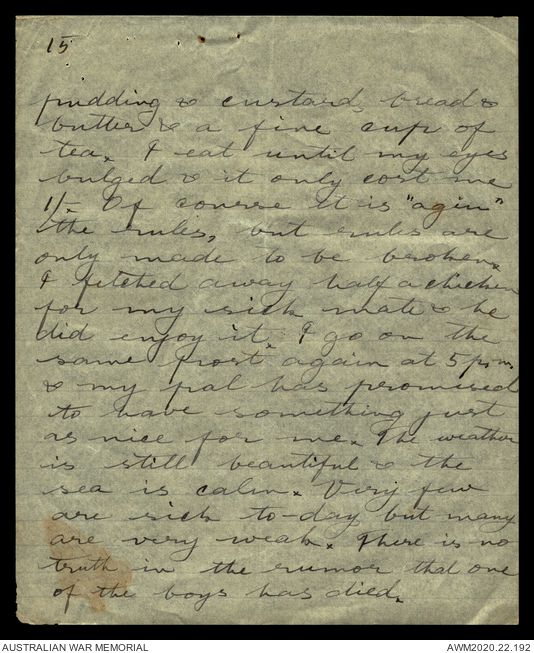 15
pudding & custard, bread &
butter & a fine cup of
tea. I eat until my eyes
bulged & it only cost me
1/-. Of course it is "agin"
the rules, but rules are
only made to be broken.
I fetched away half a chicken
for my sick mate & he
did enjoy it. I go on the
same "post" again at 5 p.m.
& my pal has promised
to have something just
as nice for me. The weather
is still beautiful & the
sea is calm. Very few
are sick to-day but many
are very weak. There is no
truth in the rumor that one
of the boys has died.
AUSTRALIAN WAR MEMORIAL
AWM2020.22.192